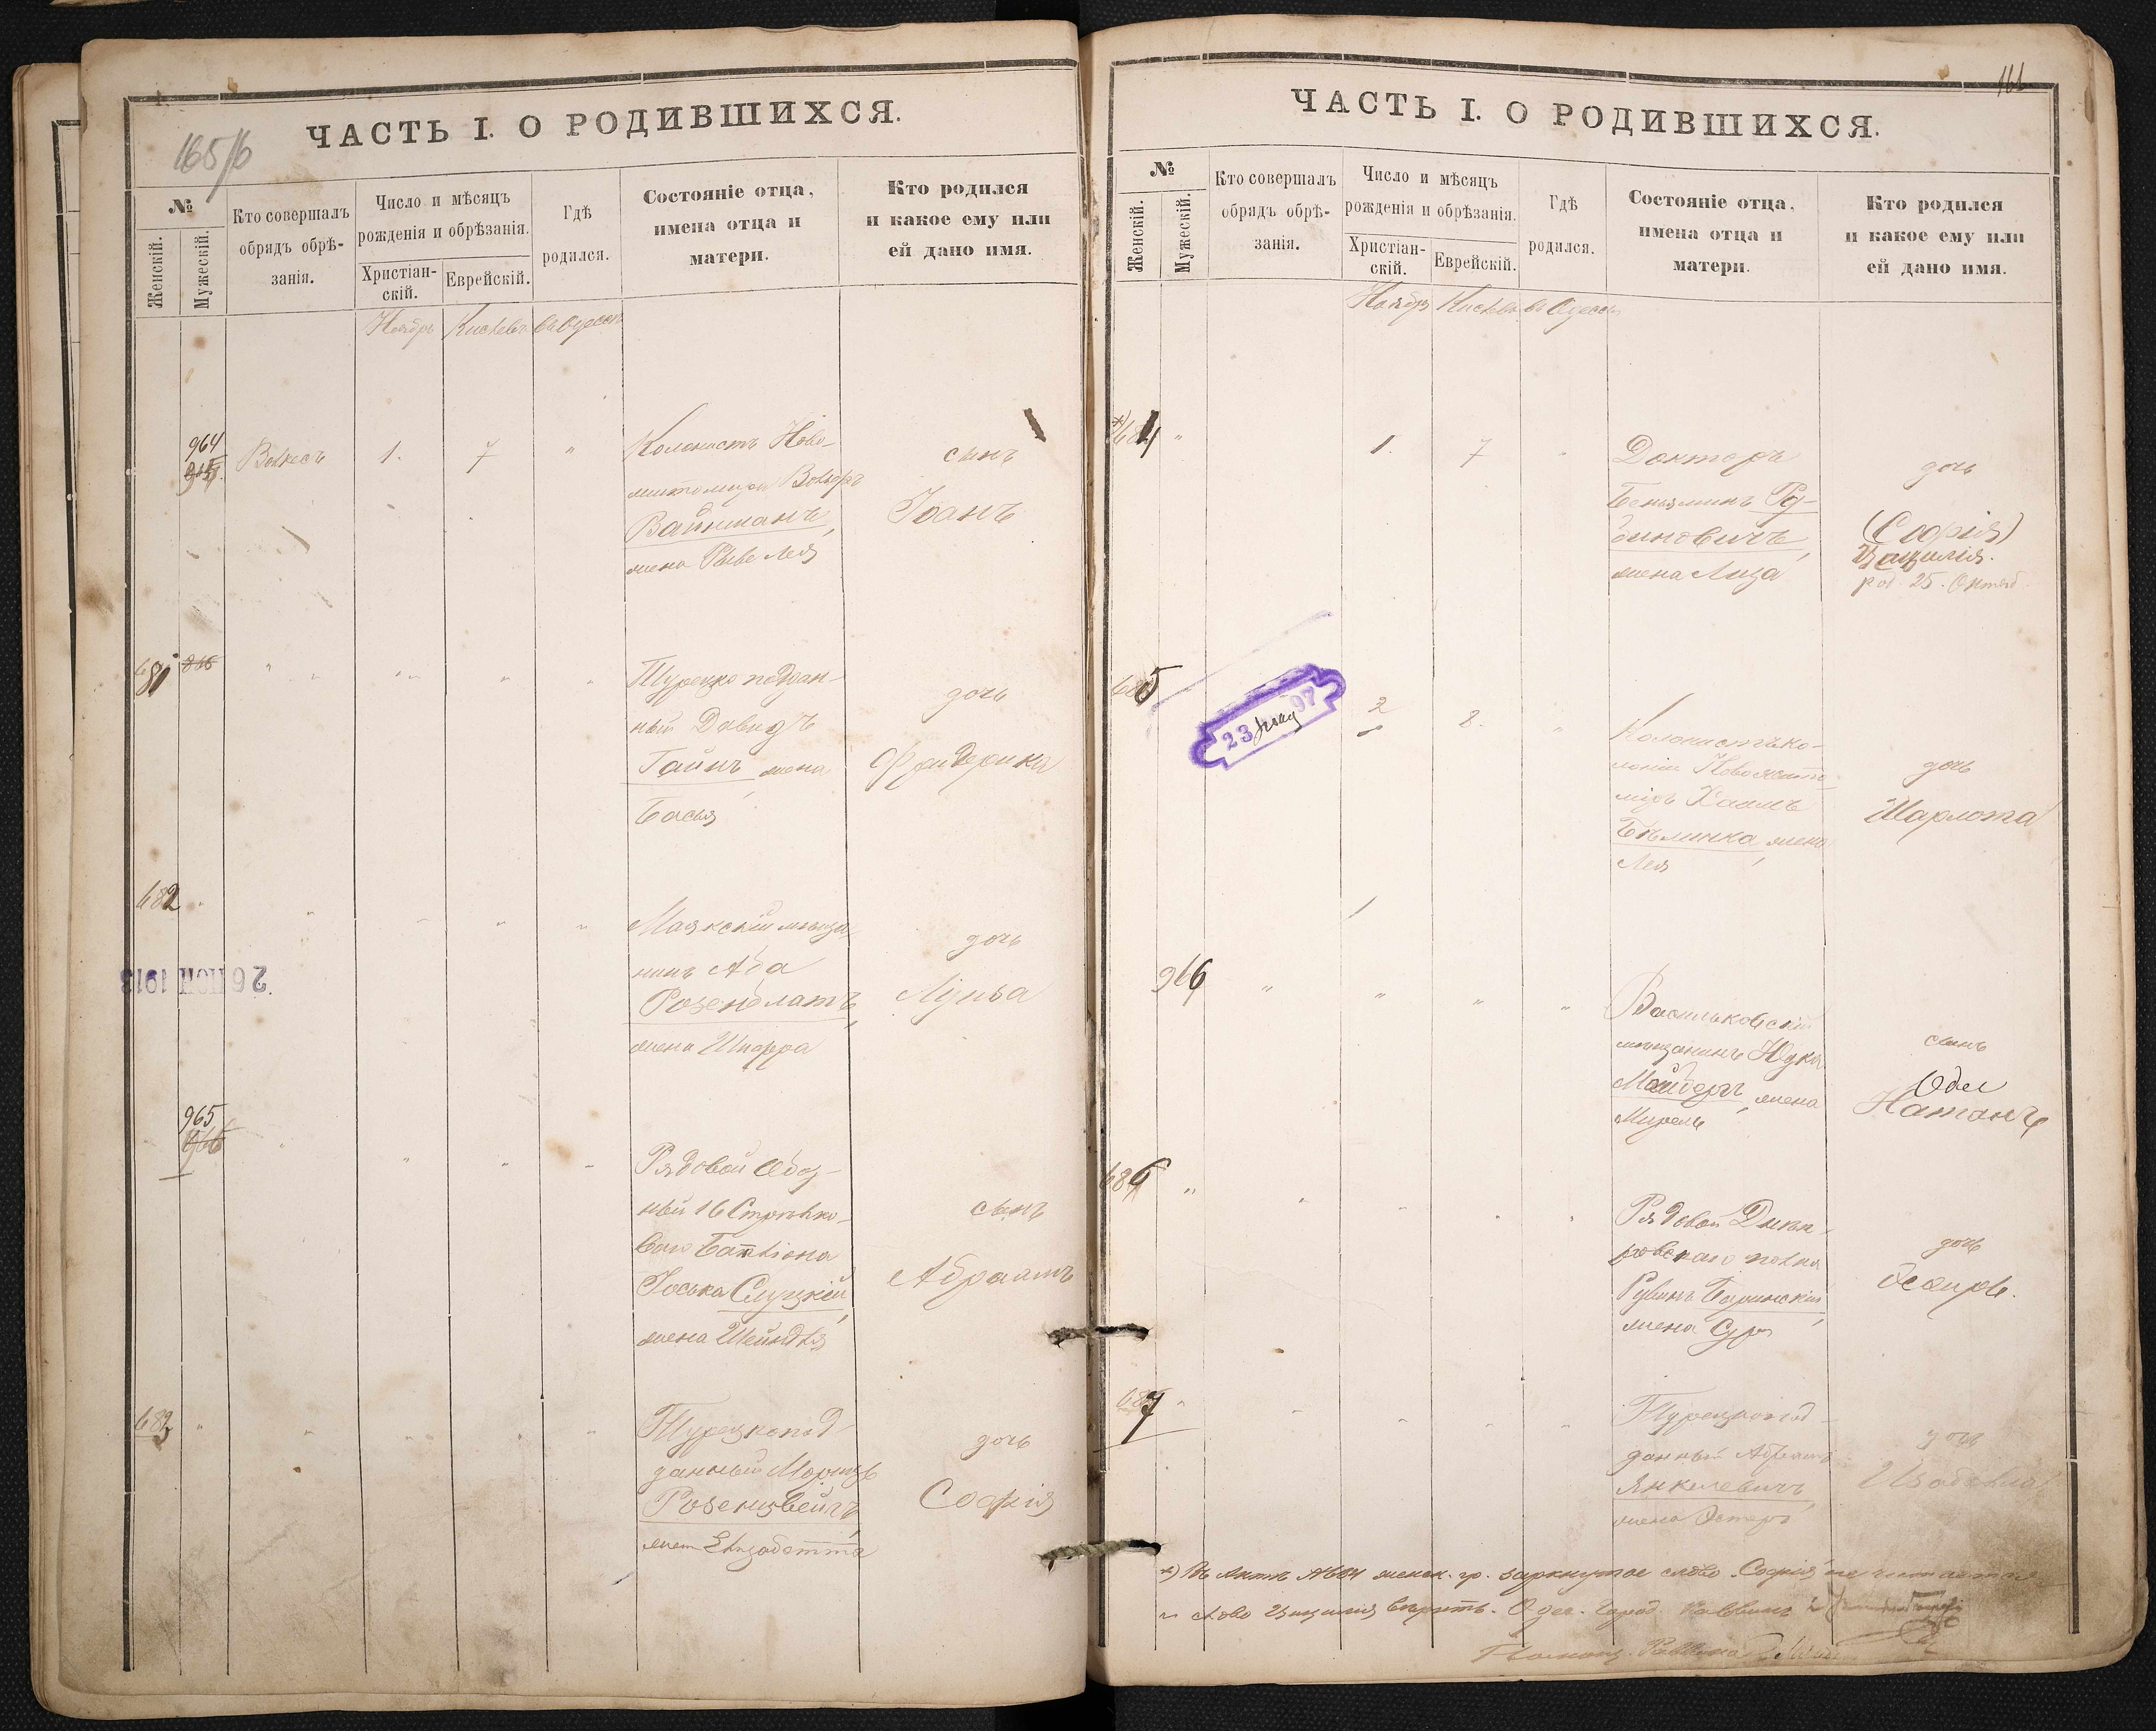 165/6
ЧАСТЬ I. О РОДИВШИХСЯ.
№
Женскій.
Мужескій.
Кто совершалъ
обрядъ обрѣ-
занія.
Число и мѣсяцъ
рожденія и обрѣзанія.
Христіан-
скій.
Еврейскій.
Гдѣ
родился.
Состояніе отца,
имена отца и
матери.
Кто родился
и какое ему или
ей дано имя.
Ноябрь Кислевъ въ Одессѣ
964
1. 7 "
Колонистъ Ново-
Вайнманъ,
жена Рыве Лея
сынъ
Іоанъ
681
Турецко поддан-
ный Давидъ
Гайнъ, жена
Бася
дочь
Фридерика
682
Маякскій мѣща-
нинъ Аба
Розенблатъ,
жена Шпора
дочь
Луиза
26 НОЯ 1913
965
Рядовой Обоз-
ный 16 Стрѣлко-
ваго Баталіона
Іоська Слуцкій,
жена Шейндля
сынъ
Абраамъ
683
Турецкопод-
данный Морицъ
Розенцвейгъ,
жена Елизабетта
дочь
Софія
161
ЧАСТЬ I. О РОДИВШИХСЯ.
№
Женскій.
Мужескій.
Кто совершалъ
обрядъ обрѣ-
занія.
Число и мѣсяцъ
рожденія и обрѣзанія.
Христіан-
скій.
Еврейскій.
Гдѣ
родился.
Состояніе отца,
имена отца и
матери.
Кто родился
и какое ему или
ей дано имя.
Ноябрь Кислевъ въ Одессѣ
*) 684 "
1. 7
Докторъ
Беньяминъ Ру-
биновичъ,
жена Лиза
дочь
(Софія)
Цецилія.
род. 25. Октяб.
685
23 97
2 8.
Колонистъ ко-
лоніи Новожито-
міръ Хаимъ
Бѣлинка, жена
Лея
дочь
Шарлота
966
Васильковскій
мѣщанинъ Юдка
Майберъ, жена
Мирель
сынъ
Натанъ
686 "
Рядовой
полка
Рувинъ Баринскій,
жена Сура
дочь
Эсѳирь.
687
Турецкопод-
данный Абрамъ
Янкелевичъ,
жена Эстеръ
дочь
Изабелла
*) Въ актѣ №684 женск. гр. зачеркнутое слово Софія не читается
а слово Цецилія вѣрить. Одес. Город. Раввинъ
Помощ. Раввина